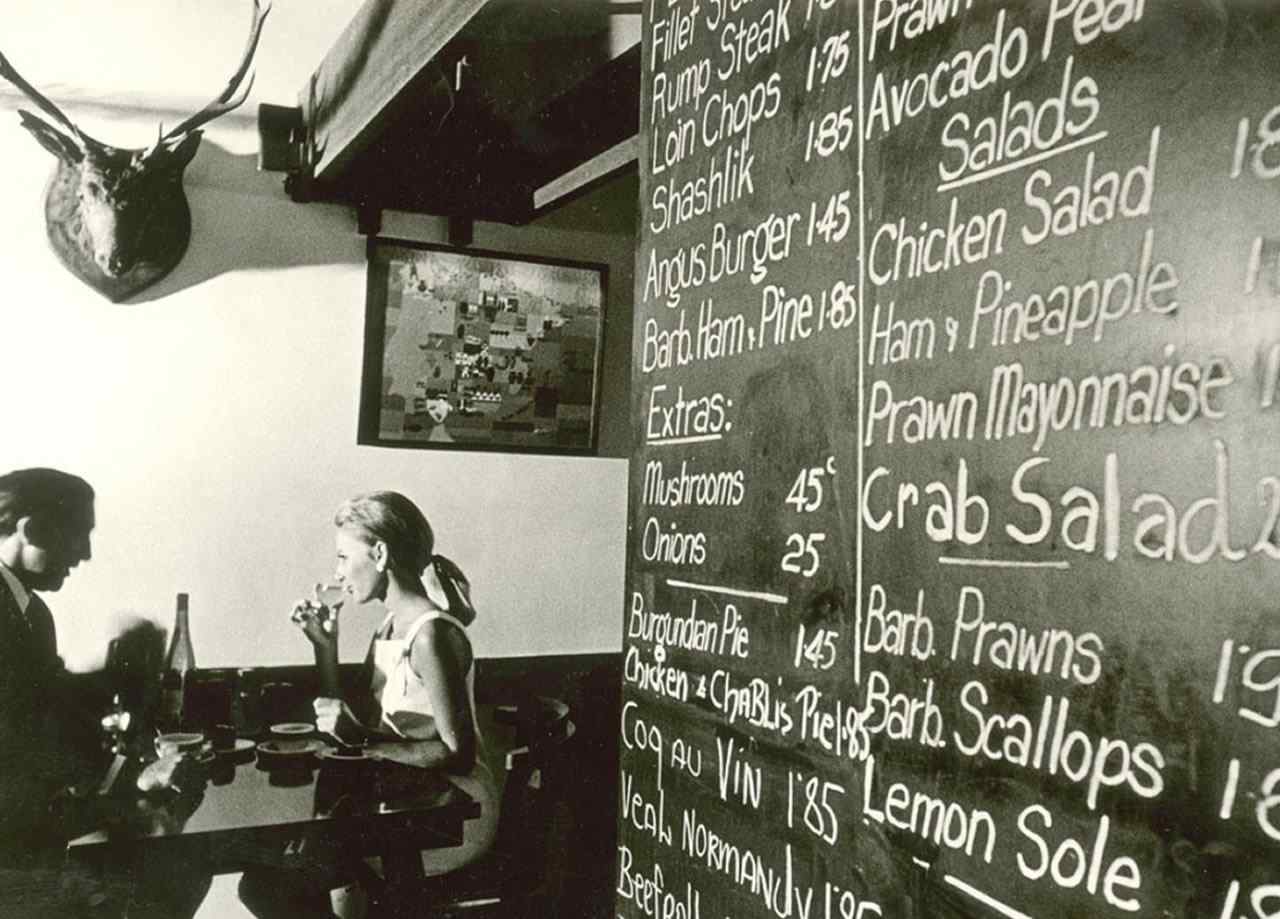 Fillet
Rump Steak
Loin Chops 1.75
Shashlik 1.85
Angus Burger 1.45
Barb. Ham & Pine 1.85
Extras:
Mushrooms 45c
Onions 25
Burgundian Pie 1.45
Chicken & CHABLiS Pie 1.85
Coq AU ViN 1.85
VEAL NORMANDY 1.85
Prawn
Avocado Pear
Salads
Chicken Salad
Ham & Pineapple
Prawn Mayonnaise
Crab Salad
Barb. Prawns
Barb. Scallops
Lemon Sole